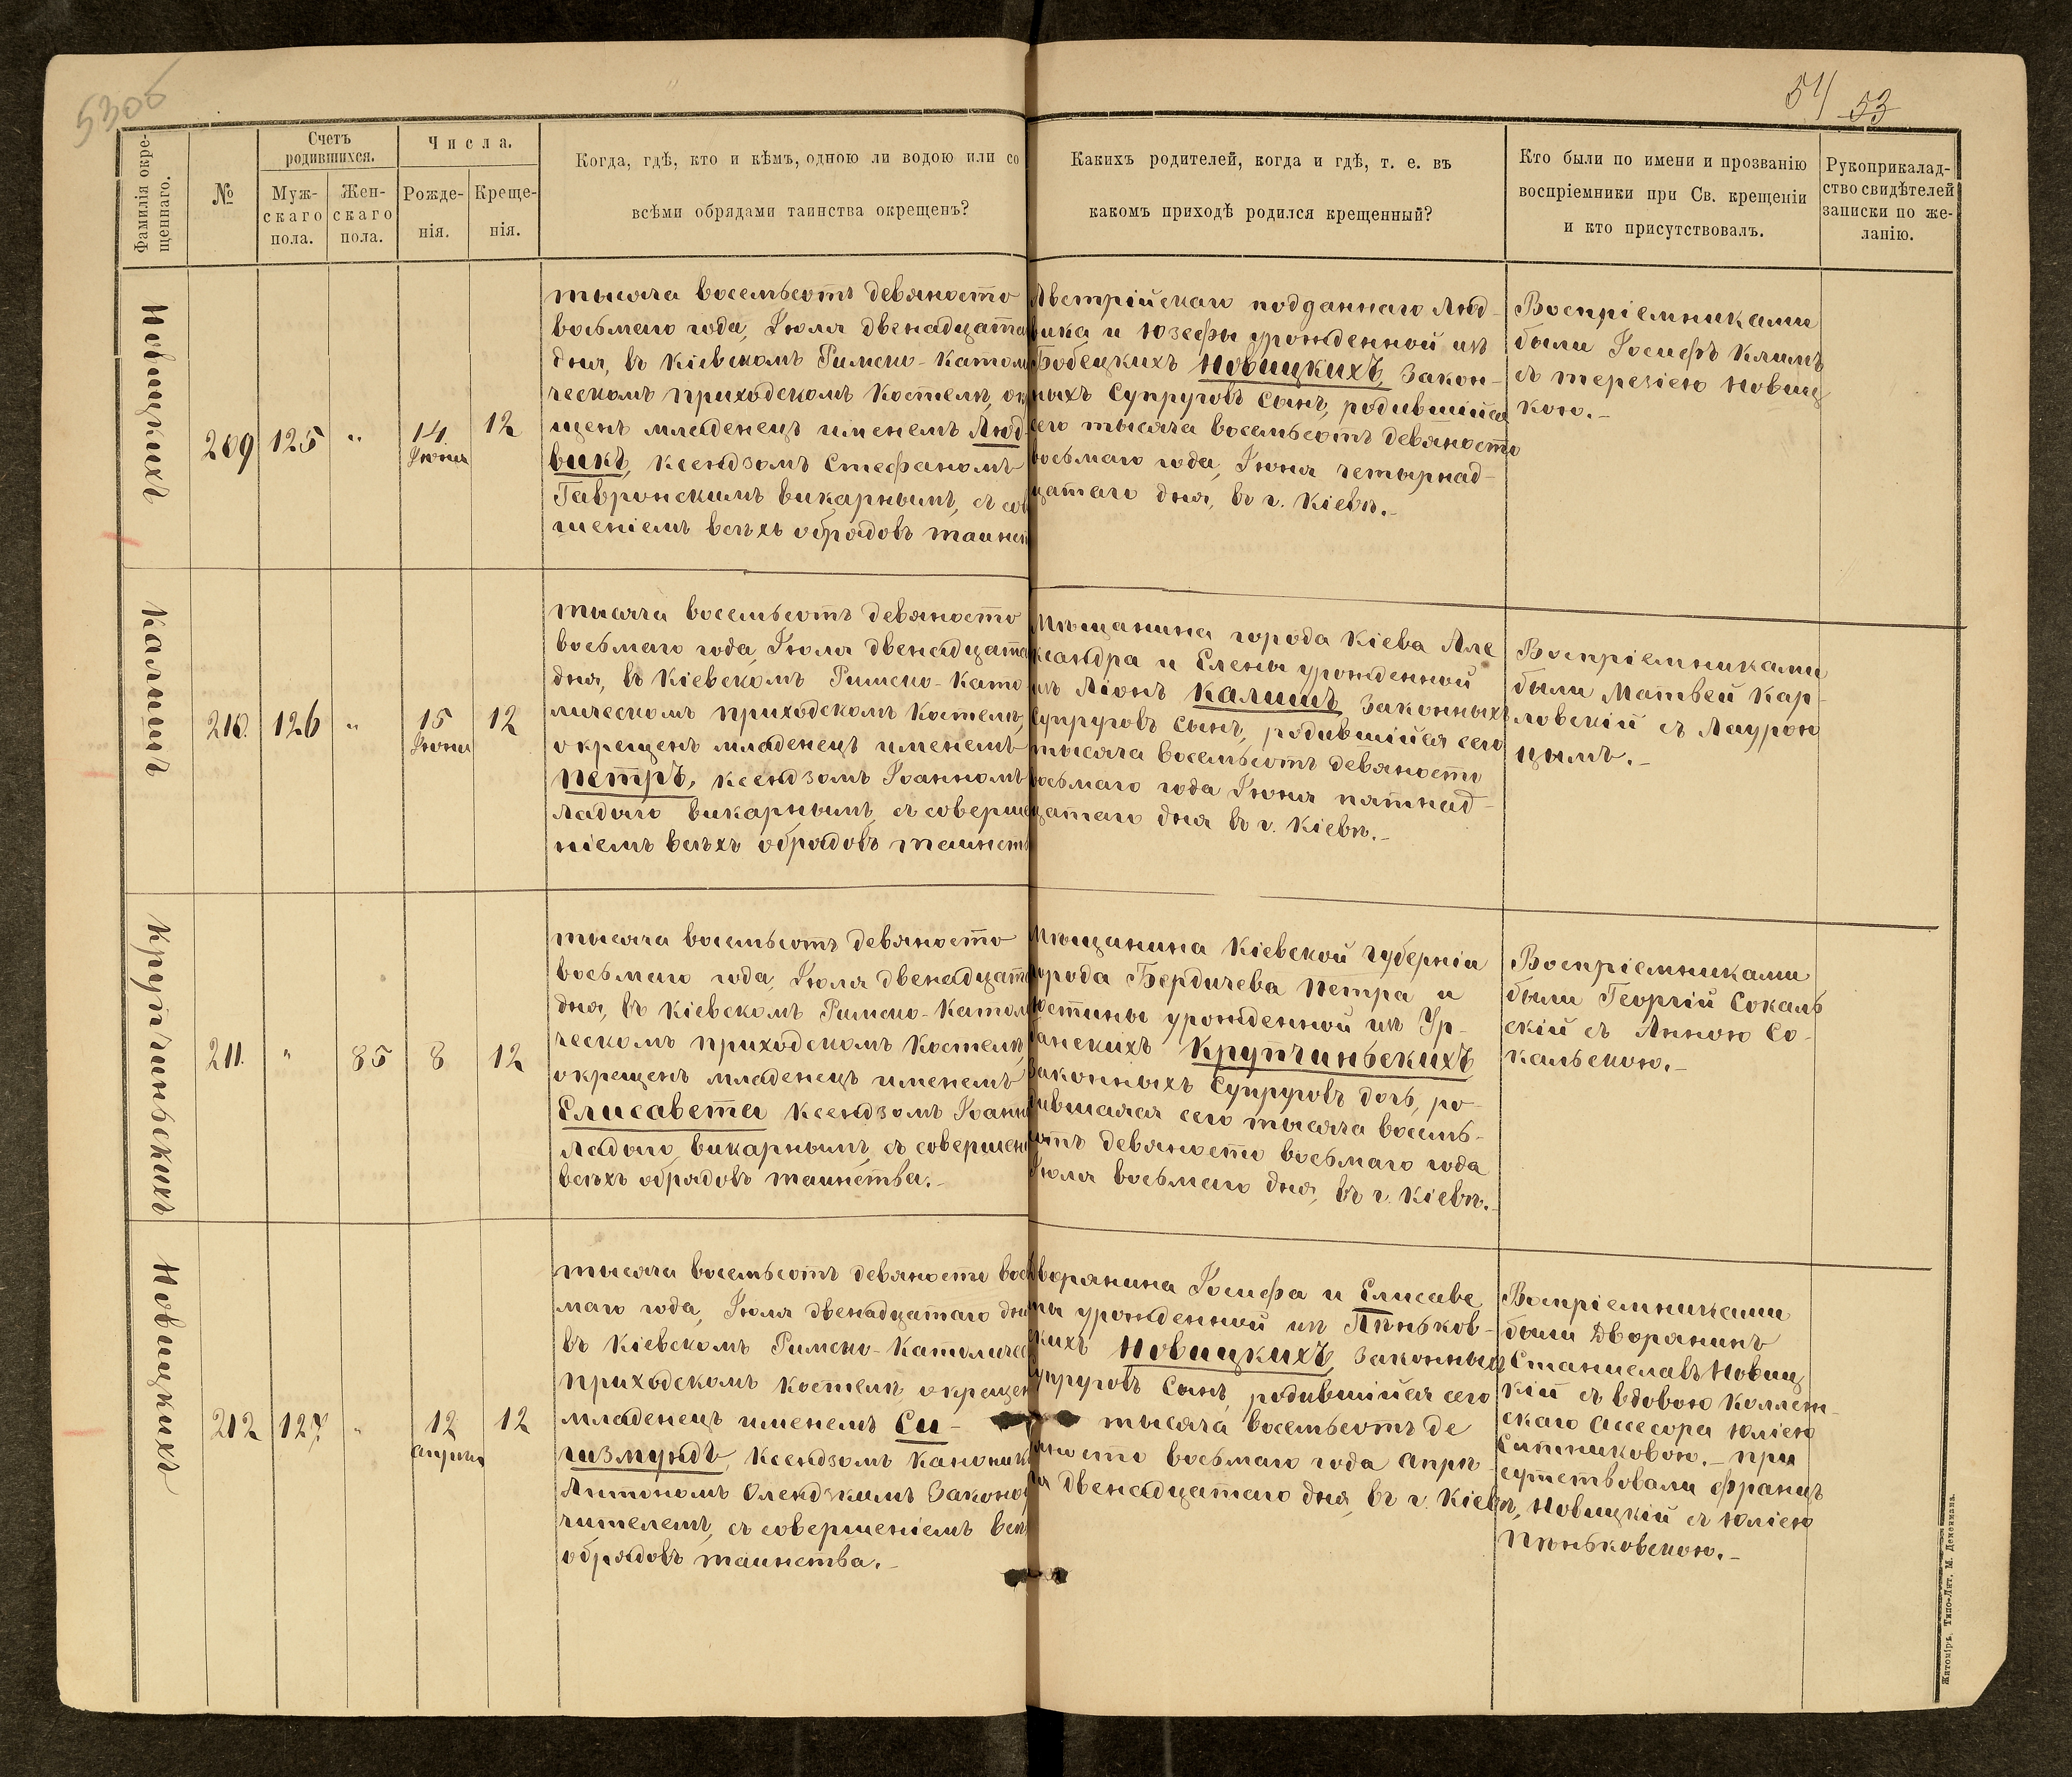 53об
54 53
Фамилія окре-
щеннаго.
№
Счетъ
родившихся.
Муж-
скаго
пола.
Жен-
скаго
пола.
Числа.
Рожде-
нія.
Креще-
нія.
Когда, гдѣ, кто и кѣмъ, одною ли водою или со
всѣми обрядами таинства окрещенъ?
Какихъ родителей, когда и гдѣ, т. е. въ
какомъ приходѣ родился крещенный?
Кто были по имени и прозванію
воспріемники при Св. крещеніи
и кто присутствовалъ.
Рукоприкалад-
ство свидѣтелей
записки по же-
ланію.
Новицкихъ
209
125
"
14
Іюня
12
тысяча восемьсотъ девяносто
восьмаго года, Іюля двенадцата
дня, въ Кіевскомъ Римско-Катол
ческомъ приходскомъ Костелѣ, ок
щенъ младенецъ именемъ Люд-
викъ, Ксендзомъ Стефаномъ
Гавронскимъ викарнымъ, съ сов
шеніемъ всѣхъ обрядовъ таинст
Австрійскаго подданнаго Люд-
вика и Юзефы урожденной изъ
Бобецкихъ Новицкихъ, закон-
ныхъ Супруговъ сынъ, родившійся
сего тысяча восемьсотъ девяносто
восьмаго года, Іюня четырнад-
цатаго дня, въ г. Кіевѣ.-
Воспріемниками
были Іосифъ Климъ
съ Терезіею Новиц
кою.-
Калишъ
210.
126
"
15
Іюня
12
тысяча восемьсотъ девяносто
восьмаго года, Іюля двенадцата
дня, въ Кіевскомъ Римско-Като
лическомъ приходскомъ Костелѣ,
окрещенъ младенецъ именемъ
Петръ, Ксендзомъ Іоанномъ
Ладыго викарнымъ, съ соверше
ніемъ всѣхъ обрядовъ таинств
Мѣщанина города Кіева Але
ксандра и Елены урожденной
изъ Ліонъ Калишъ, законныхъ
Супруговъ сынъ, родившійся сего
тысяча восемьсотъ девяносто
восьмаго года Іюня пятнад-
цатаго дня въ г. Кіевѣ.-
Воспріемниками
были Матвей Кар-
ловскій съ Лаурою
Крупчиньскихъ
211.
"
85
8
12
тысяча восемьсотъ девяносто
восьмаго года, Іюля двенадцата
дня, въ Кіевскомъ Римско-Катол
ческомъ приходскомъ Костелѣ,
окрещенъ младенецъ именемъ
Елисавета Ксендзомъ Іоанн
Ладыго викарнымъ, съ совершен
всѣхъ обрядовъ таинства.-
Мѣщанина Кіевской губерніи
города Бердичева Петра и
урожденной изъ Ур-
банскихъ Крупчиньскихъ
законныхъ Супруговъ дочь, ро-
дившаяся сего тысяча восемь-
сотъ девяносто восьмаго года
Іюля восьмаго дня, въ г. Кіевѣ.-
Воспріемниками
были Георгій Сокаль
скій съ Анною Со-
кальскою.-
Новицкихъ
212
127
"
12
апрѣля
12
тысяча восемьсотъ девяносто вос
маго года, Іюля двенадцатаго дня
въ Кіевскомъ Римско-Католичес
приходскомъ Костелѣ окрещен
младенецъ именемъ Си-
гизмундъ, Ксендзомъ Канонико
Антономъ Олендзкимъ Законоу
чителемъ, съ совершеніемъ всѣ
обрядовъ таинства.-
Дворянина Іосифа и Елисаве
ты урожденной изъ Пѣньков-
скихъ Новицкихъ, законныхъ
Супруговъ сынъ, родившійся сего
тысяча восемьсотъ де
вяносто восьмаго года апрѣ
ля двенадцатаго дня, въ г. Кіевѣ,
Воспріемниками
были Дворянинъ
Станиславъ Новиц
кій съ вдовою Коллеж-
скаго Ассесора Юліею
Ситниковою.- При
сутствовали Францъ
Новицкій съ Юліею
Пѣньковскою.-
Житоміръ. Типо-Лит. М. Дененмана.